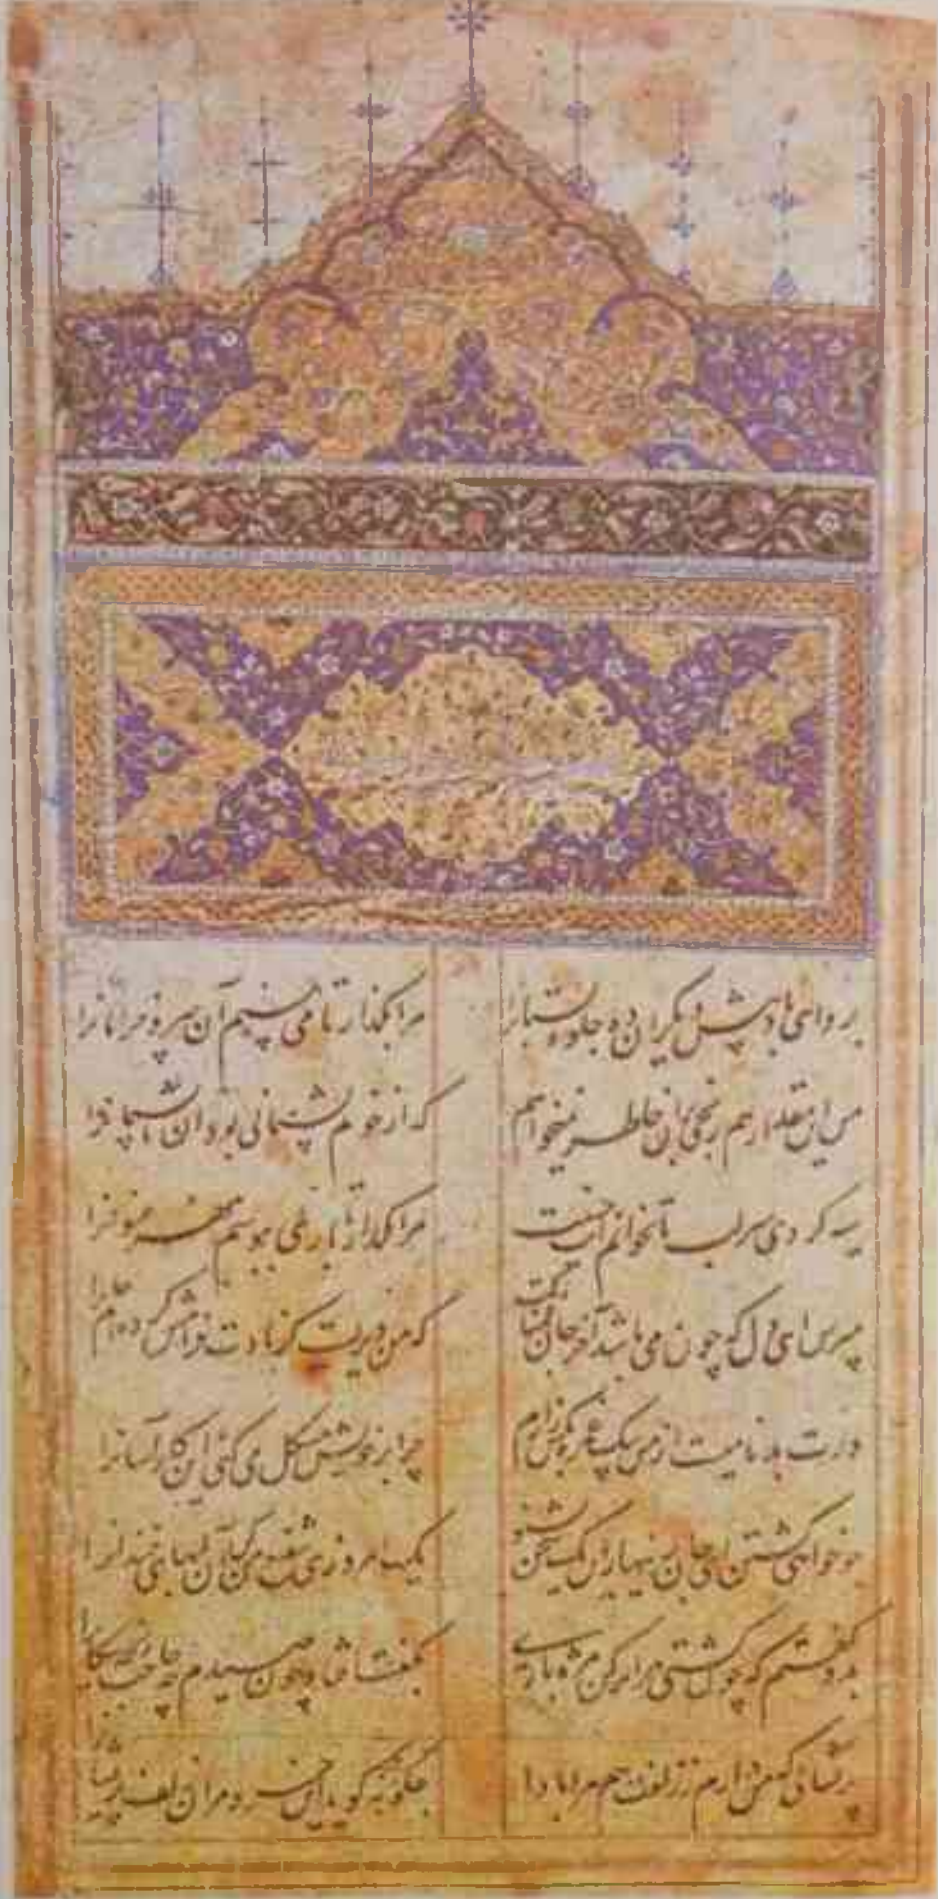 برو ای باد پیش دیگران ده جلوه بستانرا مرا بگذار تا می بینم آن سرو خرامانرا
من این مقدار هم رنجی بران خاطر نمیخواهم که از خونم پشیمانی بود آن ناپشیمانرا
سیه کردی سر لب تا نخوانم مرا بگذار تا باری ببوسم مهر
مپرس ای دل که چون می باشد آخر جان که من دیریست کز یادت فرامش کرده ام جانرا
ورت بدنامیست از من بیک غمزه بکش زارم چرا بر خویش مشکل می کنی این کار آسانرا
چو خواهی کشتن ای جان زینهار از یک سخن بشنو یک امروزی شفیع من کن آن لبهای خندانرا
بدو گفتم که چون کشتی مرا کن مژه باری بگفتا چون صیدم چه
پریشانی که من دارم ز زلفت هم مرا بادا چگونه گوید این خسرو مر آن زلف پریشانرا